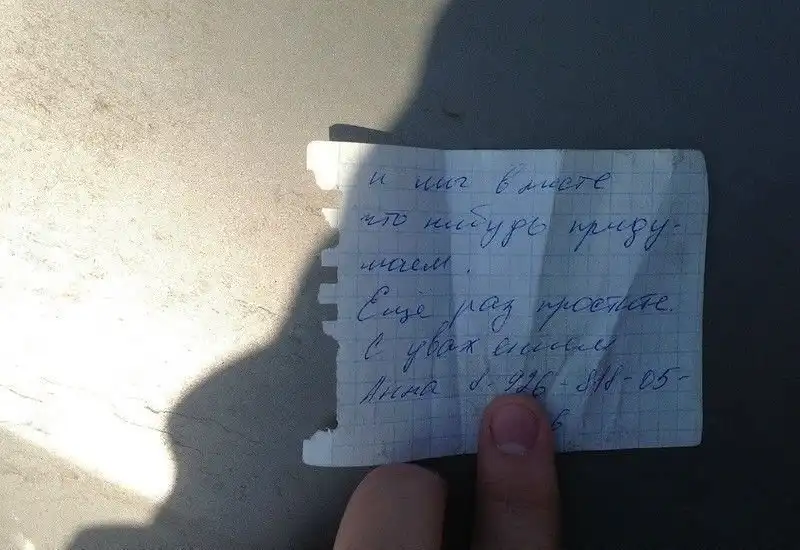 и мы вместе
что нибудь приду-
маем.
Ещё раз простите.
С уважением
Анна 8-926-818-05-
6